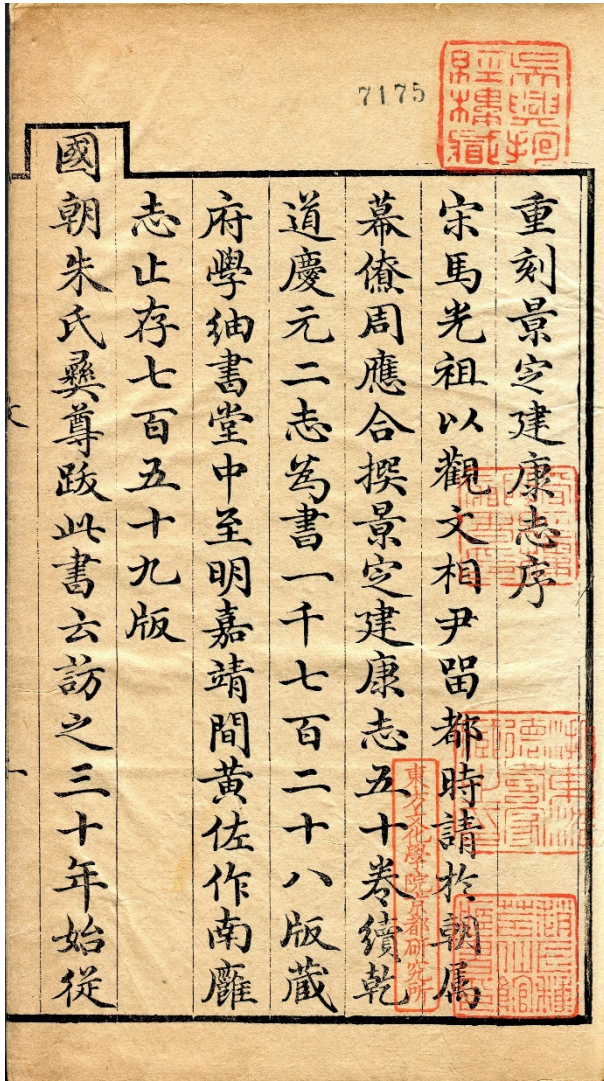 重刻景定建康志序
宋馬光祖以觀文相尹畱都時請於朝属
幕僚周應合撰景定建康志五十卷續乾
道慶元二志為書一千七百二十八版蔵
府學紬書堂中至明嘉靖間黃佐作南廱
志止存七百五十九版
國朝朱氏彝尊跋此書云訪之三十年始從
7175
東方文化學院京都研究所